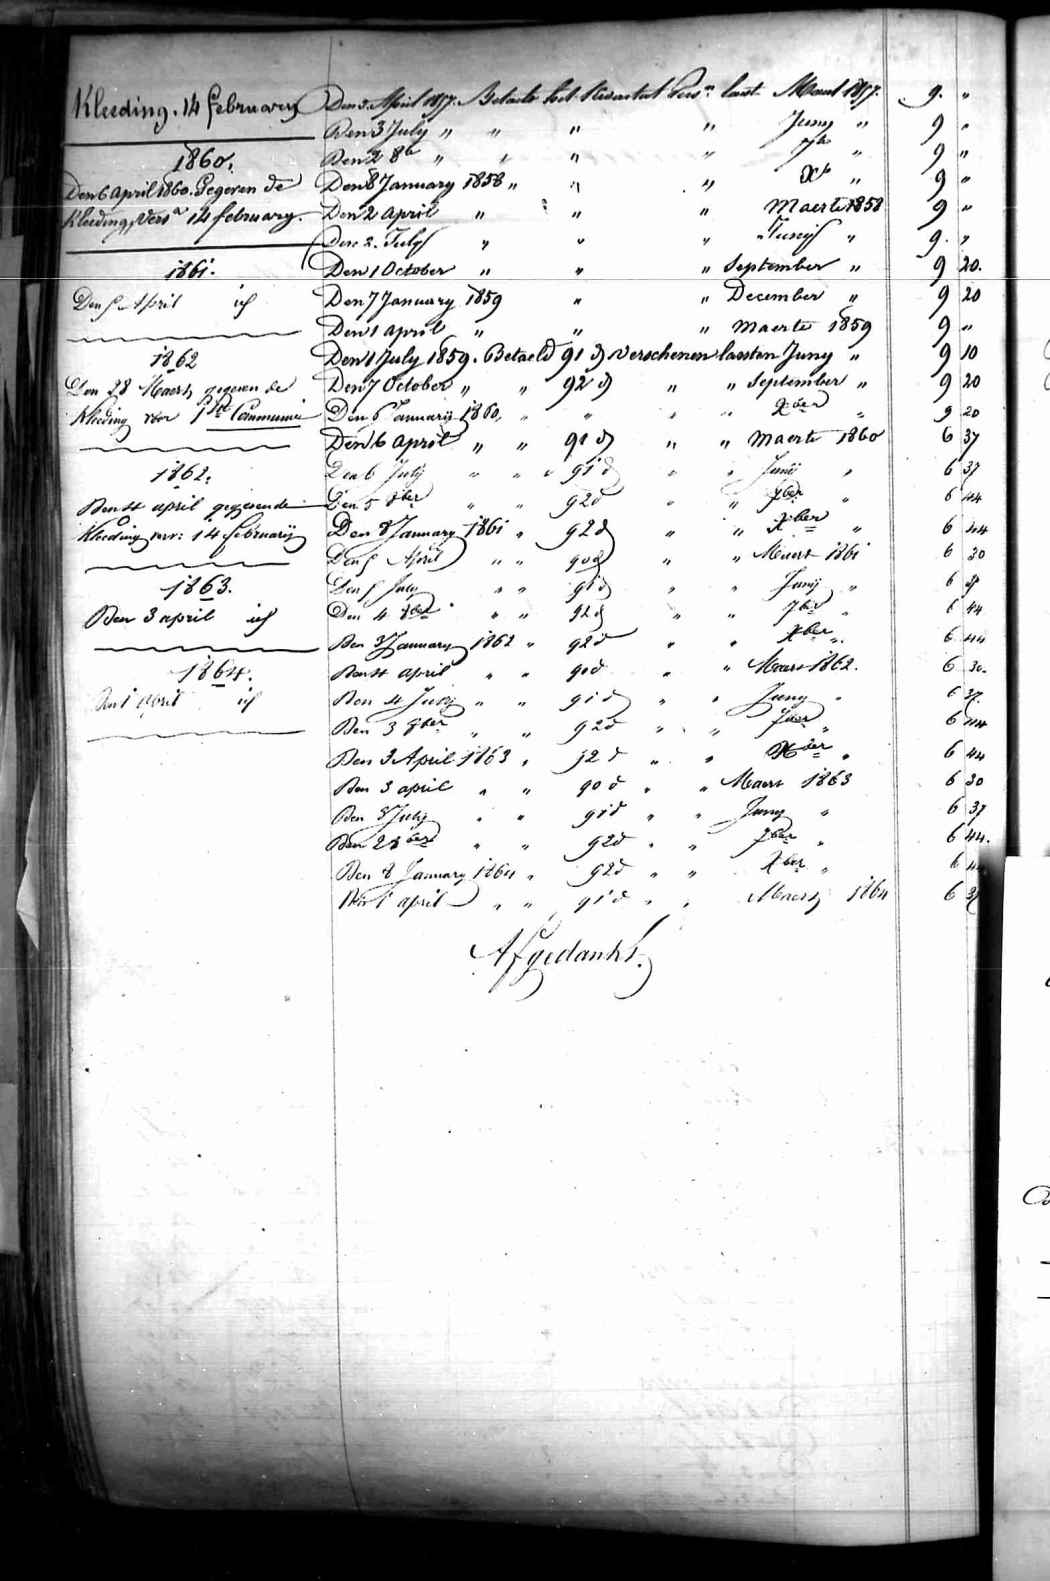 Kleeding. 14 february
1860.
Den 6 April 1860. Gegeven de
Kleeding, Versn 14 february.
1861.
Den 5 April id
1862
Den 28 Maert gegeven de
Kleeding voor 1ste Communie
1862.
Den 4 april gegevende
Kleeding verv: 14 februarij
1863.
Den 3 april id
1864.
Den 1 April id
Den 3. April 1857. Betaelt het Kwartael Versn. laest Maert 1857. 9. "
Den 3 July " " " " Juny " 9 "
Den 2 8b " " " " 7b " 9 "
Den 8 January 1858 " " " Xb " 9 "
Den 2 april " " " Maerte 1858 9 "
Den 2. July " " " Junij " 9. "
Den 1 October " " " September " 9 20.
Den 7 January 1859 " " December " 9 20
Den 1 april " " " Maerte 1859 9 "
Den 1 July 1859. Betaeld 91 d verschenen laesten Juny " 9 10
Den 7 October " " 92 d " " September " 9 20
Den 6 Januarij 1860, " " " " Xber " 9 20
Den 6 april " " 91 d " " Maerte 1860 6 37
Den 6 July " " " 91 d " " Junij " 6 37
Den 5 8ber " " 92 d " " 7ber " 6 44
Den 8 January 1861 " 92 d " " Xber " 6 44
Den 5 April " " 90 d " " Maert 1861 6 30
Den 5 July " " 91 d " " Junij " 6 37
Den 4 8ber " " 92 d " " 7ber " 6 44
Den 3 January 1862 " 92 d " " Xber " 6 44
Den 4 april " " 90 d " Maert 1862. 6 30.
Den 4 July " " 91 d " " Juny " 6 37.
Den 3 8ber " " 92 d " " 7ber " 6 44
Den 3 April 1863 " 92 d " " Xber " 6 44
Den 3 april " " 90 d " " Maert 1863 6 30
Den 3 July " " 91 d " " Juny " 6 37
Den 2 8ber " " 92 d " " 7ber " 6 44.
Den 8 January 1864 " 92 d " " Xber " 6 44
Den 1 april " " 91 d " " Maert 1864 6 37
Afgedankt.